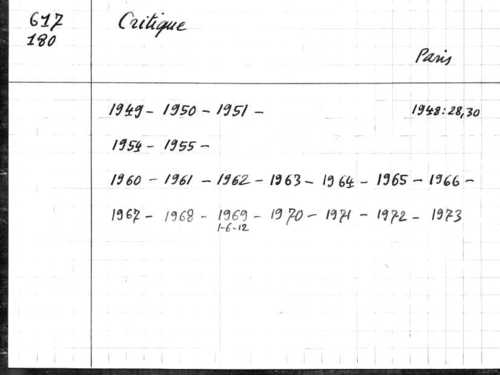 617
180
Critique
Paris
1949 - 1950 - 1951 -
1948: 28, 30
1954 - 1955 -
1960 - 1961 - 1962 - 1963 - 1964 - 1965 - 1966 -
1967 - 1968 - 1969 - 1970 - 1971 - 1972 - 1973
1-6-12